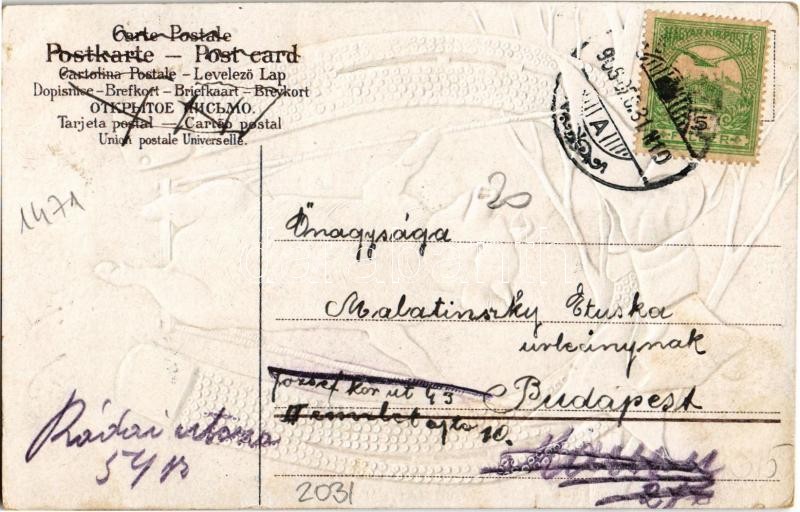 Carte Postale
Postkarte — Post card
Cartolina Postale - Levelező Lap
Dopisnice - Brefkort - Briefkaart - Brevkort
ОТКРЫТОЕ ПИСЬМО.
Tarjeta postal — Cartão postal
Union postale Universelle.
MAGYAR KIR. POSTA
A
1471
20
Önagysága
Malatinszky Etuska
úrleánynak
Budapest
József kör út 43
II emelet ajto 10.
Ráday utcza
54
2031